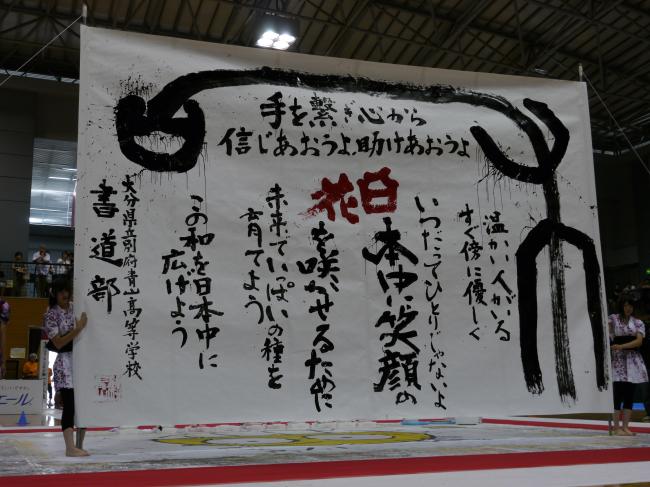 手を繋ぎ心から
信じあおうよ、助けあおうよ
温かい人がいる
すぐ傍に優しく
いつだってひとりじゃないよ
日本中に笑顔の
花を咲かせるために
未来でいっぱいの種を
育てよう
この和を日本中に
広げよう
大分県立別府青山高等学校
書道部
エール